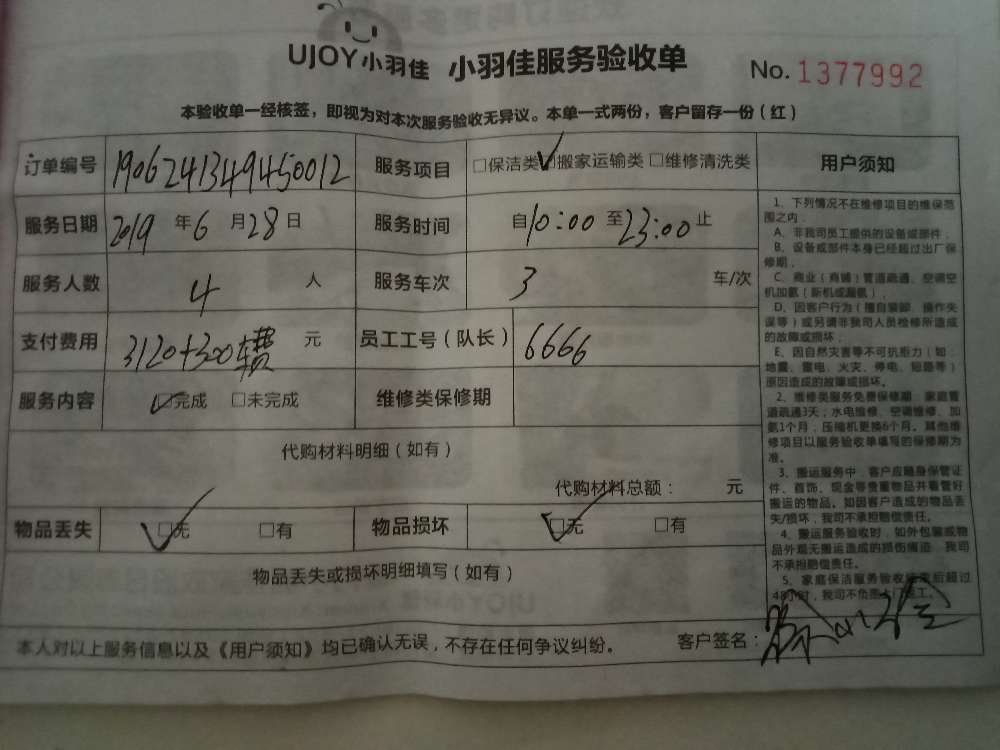 UJOY小羽佳 小羽佳服务验收单 No. 1377992
本验收单一经核签，即视为对本次服务验收无异议。本单一式两份，客户留存一份（红）
订单编号 1906241349450012 服务项目 □保洁类 ☑搬家运输类 □维修清洗类
服务日期 2019 年 6 月 28 日 服务时间 自 10:00 至 23:00 止
服务人数 4 人 服务车次 3 车/次
支付费用 3120+300 费 元 员工工号（队长） 6666
服务内容 ☑完成 □未完成 维修类保修期
代购材料明细（如有）
代购材料总额： 元
物品丢失 ☑无 □有 物品损坏 ☑无 □有
物品丢失或损坏明细填写（如有）
本人对以上服务信息以及《用户须知》均已确认无误，不存在任何争议纠纷。 客户签名：
用户须知
1、下列情况不在维修项目的维保范
围之内：
A、非我司员工提供的设备或部件，
B、设备或部件本身已经超过出厂保
修期，
C、商业（商铺）管道疏通、空调空
机加氨（新机或漏氨），
D、因客户行为（擅自装卸、操作失
误等）或另请非我司人员检修所造成
的故障或损坏；
E、因自然灾害等不可抗拒力（如：
地震、雷电、火灾、停电、短路等）
原因造成的故障或损坏。
2、维修类服务免费保修期：家庭管
道疏通3天；水电维修、空调维修、加
氨1个月，压缩机更换6个月。其他维
修项目以服务验收单填写的保修期为
准。
3、搬运服务中，客户应随身保管证
件、首饰、现金等贵重物品并看管好
搬运的物品。如因客户造成的物品丢
失/损坏，我司不承担赔偿责任。
4、搬运服务验收时，如外包装或物
品外观无搬运造成的损伤痕迹，我司
不承担赔偿责任。
5、家庭保洁服务验收结束后超过
48小时，我司不负责上门返工。